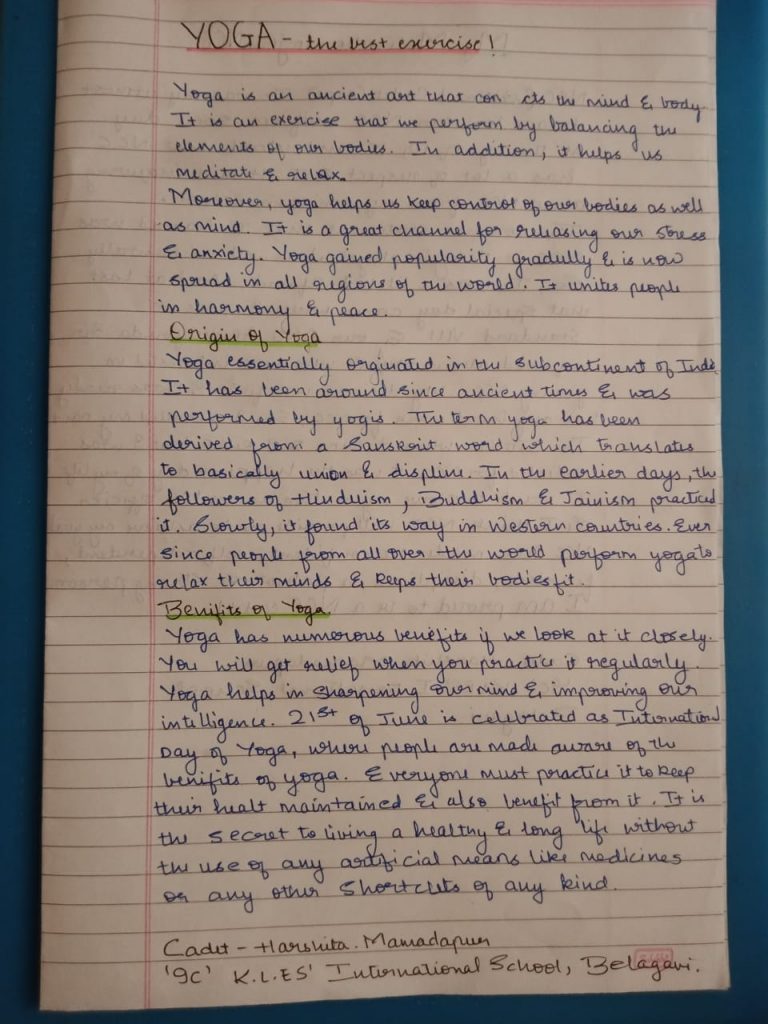 YOGA - the best exercise!
Yoga is an ancient art that con cts the mind & body.
It is an exercise that we perform by balancing the
elements of our bodies. In addition, it helps us
meditate & relax.
Moreover, yoga helps us keep control of our bodies as well
as mind. It is a great channel for relasing our stress
& anxiety. Yoga gained popularity gradully & is now
spread in all regions of the world. It unites people
in harmony & peace.
Origin of Yoga
Yoga essentially orginated in the subcontinent of India.
It has been around since ancient times & was
performed by yogis. The term yoga has been
derived from a Sanskrit word which translates
to basically union & displine. In the earlier days, the
followers of Hinduism, Buddhism & Jainism practiced
it. Slowly, it found its way in Western countries. Ever
since people from all over the world perform yoga to
relax their minds & keeps their bodies fit.
Benifits of Yoga.
Yoga has numerous benefits if we look at it closely.
You will get relief when you practice it regularly.
Yoga helps in sharpening our mind & improving our
intelligence. 21st of June is celebrated as International
Day of Yoga, where people are made aware of the
benifits of yoga. Everyone must practice it to keep
their healt maintained & also benefit from it. It is
the secret to living a healthy & long life without
the use of any artificial means like medicines
or any other shortcuts of any kind.
Cadet - Harshita. Mamadapur
'9C' K.L.ES' International School, Belagavi.